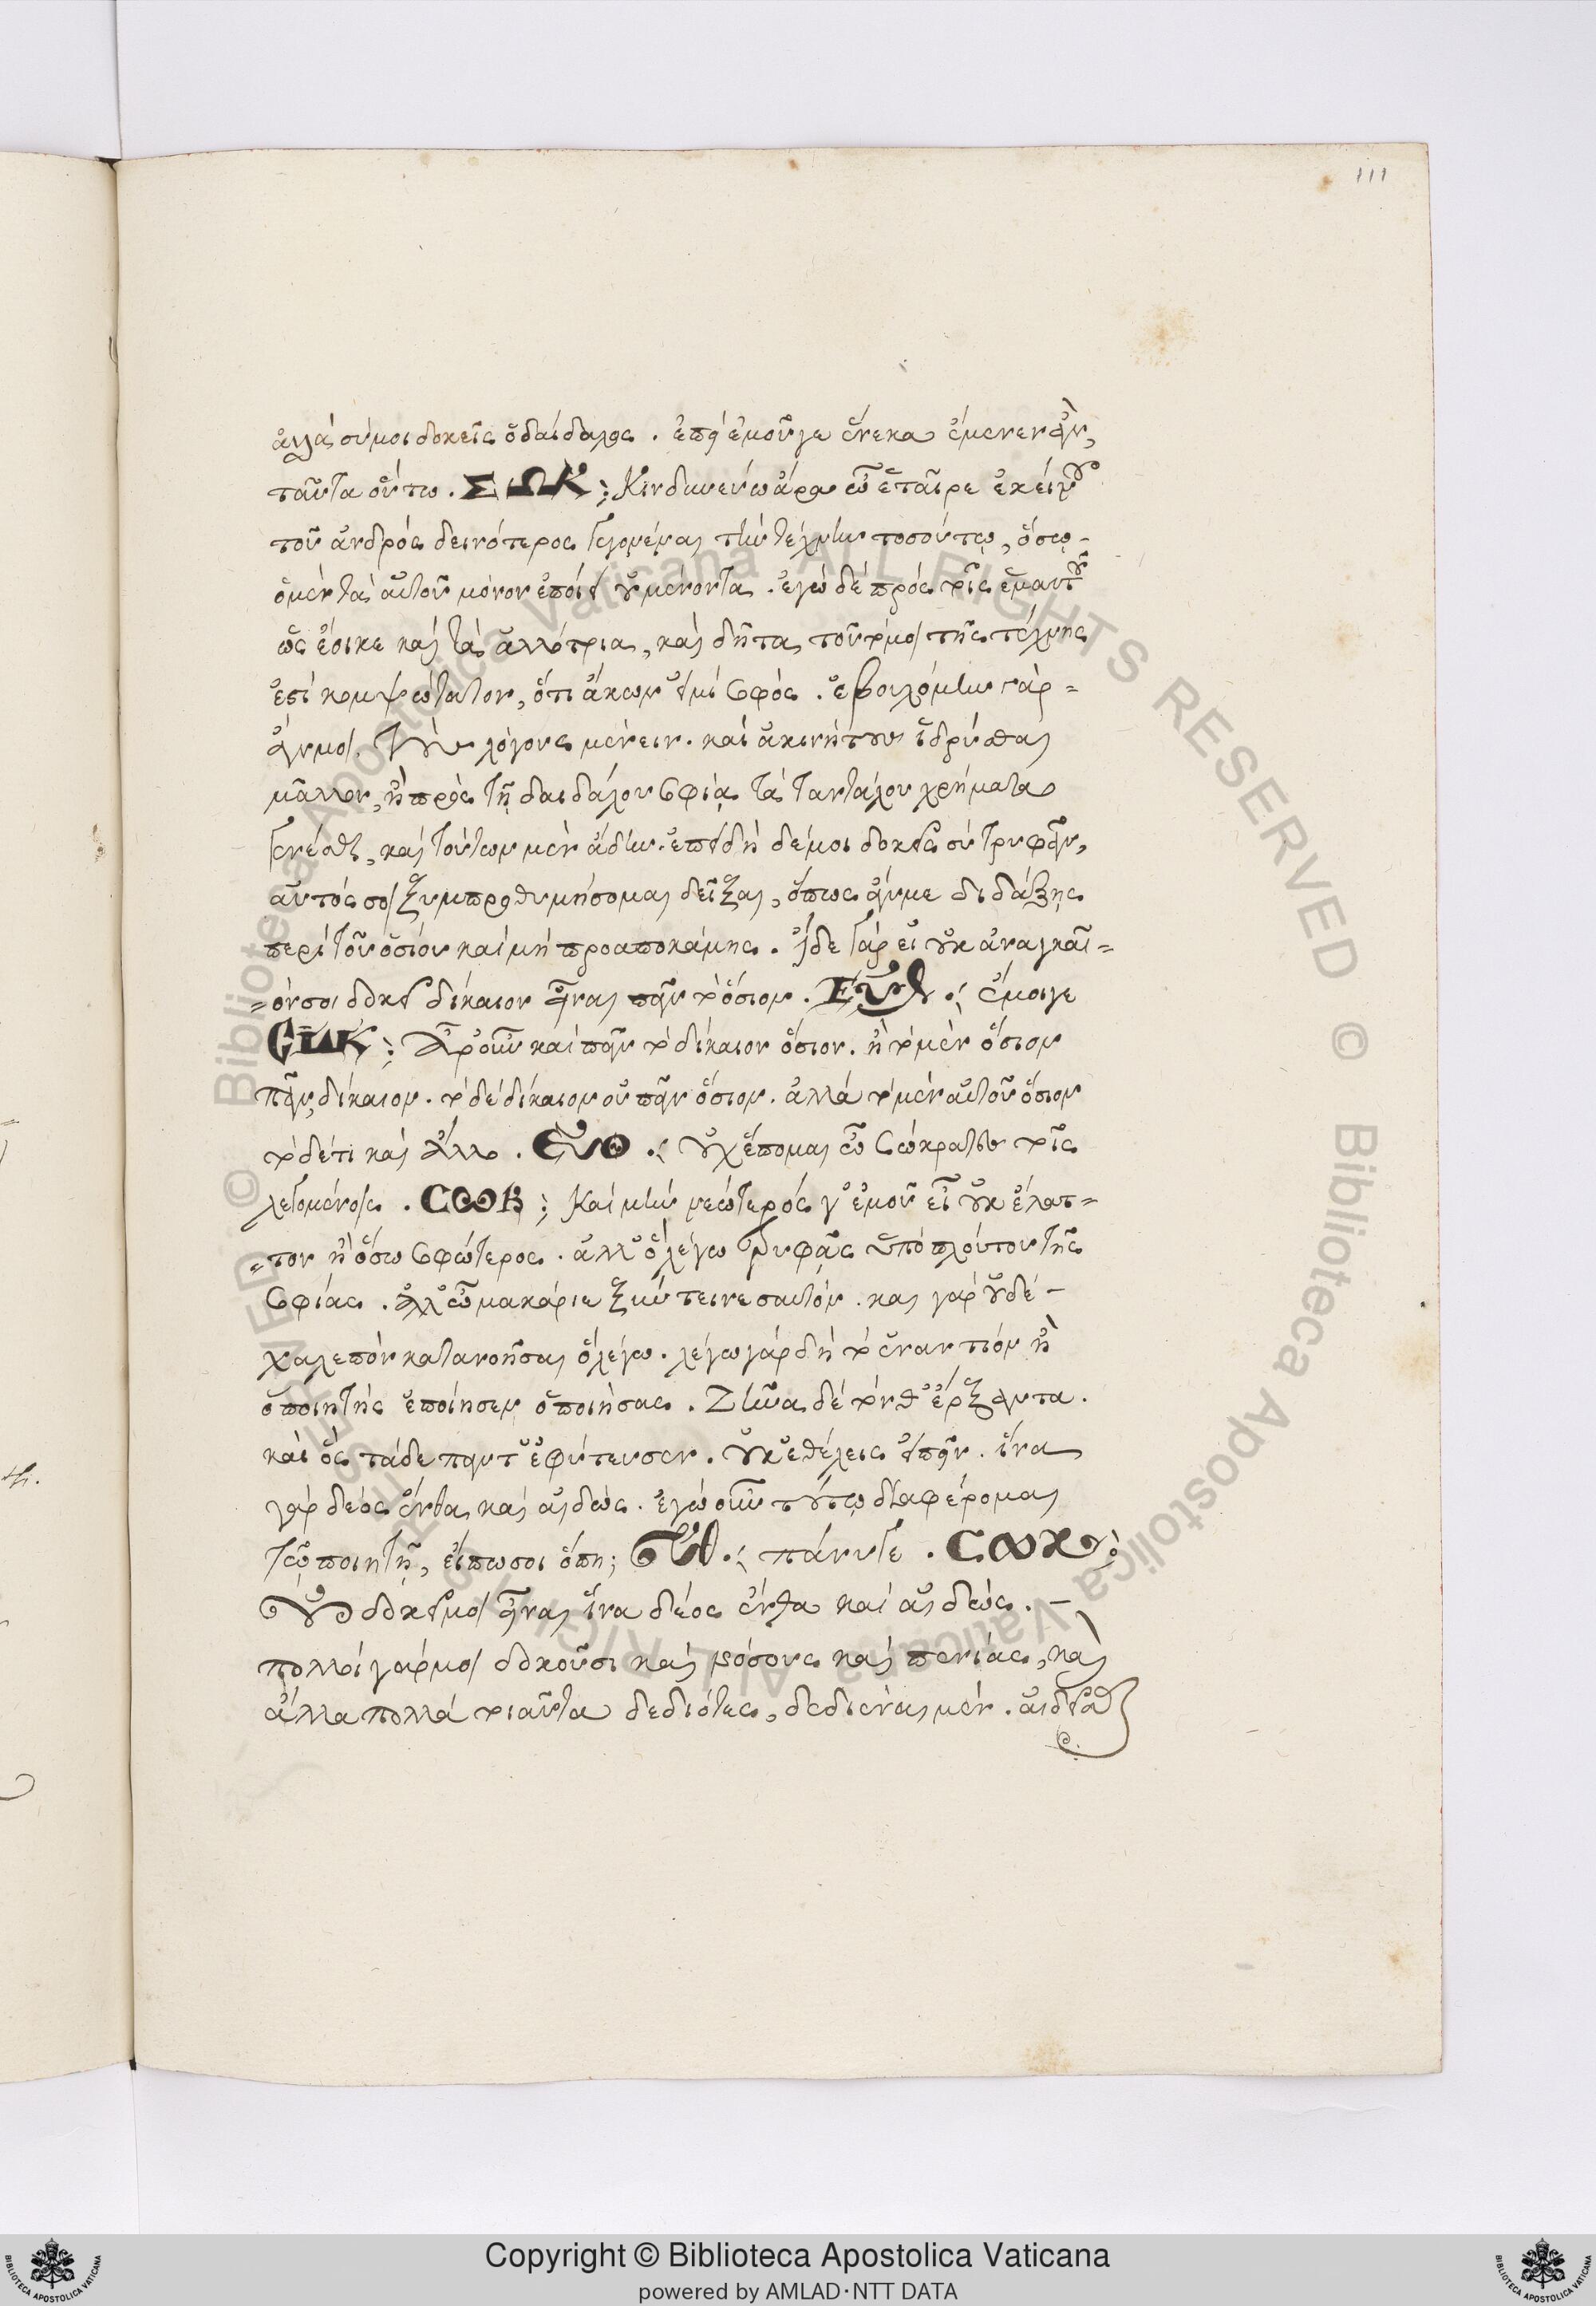 111
ἀλλὰ σύ μοι δοκεῖς ὁ δαίδαλος . ἐπεὶ ἐμοῦ γε ἕνεκα ἔμενεν ἂν,
ταῦτα οὕτω . ΣΩΚ : Κινδυνεύω ἄρα ὦ ἑταῖρε ἐκείνου
τοῦ ἀνδρὸς δεινότερος γεγονέναι τὴν τέχνην τοσούτῳ, ὅσῳ -
ὁ μὲν τὰ αὑτοῦ μόνον ἐποίει οὐ μένοντα . ἐγὼ δὲ πρὸς τοῖς ἐμαυτοῦ
ὡς ἔοικε καὶ τὰ ἀλλότρια, καὶ δῆτα τοῦτό μοι τῆς τέχνης
ἐστὶ κομψότατον, ὅτι ἄκων εἰμὶ σοφός . ἐβουλόμην γὰρ =
ἄν μοι τοὺς λόγους μένειν . καὶ ἀκινήτους ἱδρύσθαι
μᾶλλον, ἢ πρὸς τῇ δαιδάλου σοφίᾳ τὰ ταντάλου χρήματα
γενέσθαι, καὶ τούτων μὲν ἅδην . ἐπειδὴ δέ μοι δοκεῖς σὺ τρυφᾶν,
αὐτός σοι ξυμπροθυμήσομαι δεῖξαι, ὅπως ἄν με διδάξῃς
περὶ τοῦ ὁσίου καὶ μὴ προαποκάμῃς . ἴδε γὰρ εἰ οὐκ ἀναγκαῖ =
= όν σοι δοκεῖ δίκαιον εἶναι πᾶν τὸ ὅσιον . ΕΥΘ : ἔμοιγε
ΣΩΚ : Ἆρ' οὖν καὶ πᾶν τὸ δίκαιον ὅσιον . ἢ τὸ μὲν ὅσιον
πᾶν, δίκαιον . τὸ δὲ δίκαιον οὐ πᾶν ὅσιον . ἀλλὰ τὸ μὲν αὐτοῦ ὅσιον
τὸ δέ τι καὶ ἄλλο . ΕΥΘ : οὐχ ἕπομαι ὦ Σώκρατες τοῖς
λεγομένοις . CΩΚ : Καὶ μὴν νεώτερός γ' ἐμοῦ εἶ οὐκ ἔλατ =
= τον ἢ ὅσῳ σοφώτερος . ἀλλ' ὃ λέγω τρυφᾷς ὑπὸ πλούτου τῆς
σοφίας . ἀλλ' ὦ μακάριε ξύντεινε σαυτόν . καὶ γὰρ οὐδὲ -
χαλεπὸν κατανοῆσαι ὃ λέγω . λέγω γὰρ δὴ τὸ ἐναντίον ἢ
ὁ ποιητὴς ἐποίησεν ὁ ποιήσας . Ζῆνα δὲ τόν θ' ἔρξαντα .
καὶ ὃς τάδε πάντ' ἐφύτευσεν . οὐκ ἐθέλεις εἰπεῖν . ἵνα
γὰρ δέος ἔνθα καὶ αἰδώς . ἐγὼ οὖν τούτῳ διαφέρομαι
τῷ ποιητῇ, εἴπω σοι ὅπῃ; ΕΥΘ : πάνυ γε . CΩΚ :
Οὐ δοκεῖ μοι εἶναι ἵνα δέος ἔνθα καὶ αἰδώς . -
πολλοὶ γάρ μοι δοκοῦσι καὶ νόσους καὶ πενίας, καὶ
ἄλλα πολλὰ τοιαῦτα δεδιότες, δεδιέναι μέν . αἰδεῖσθαι